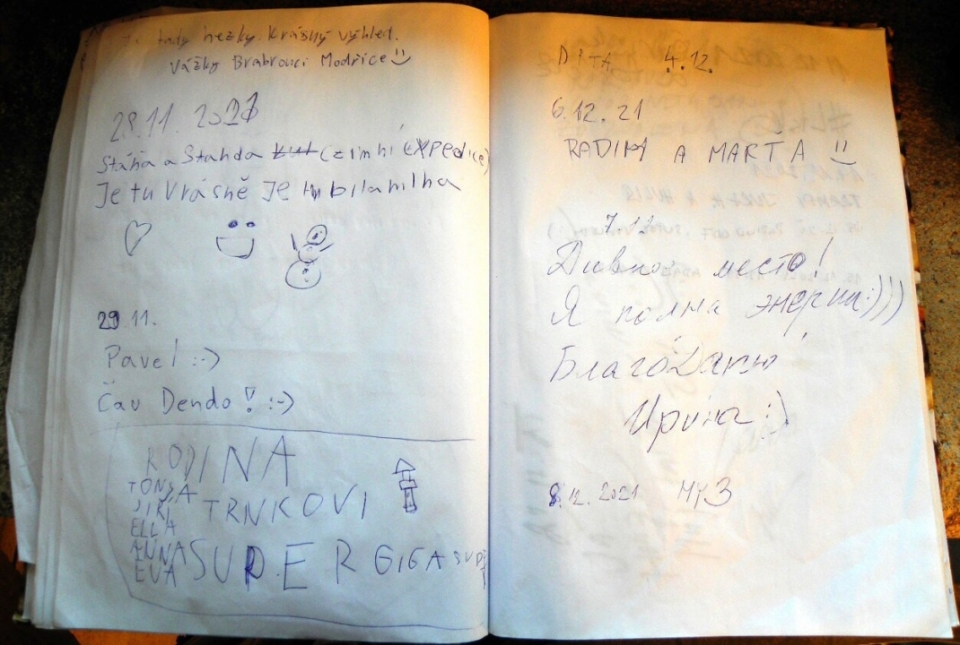 tady hezky krásný výhled.
Vážky Brabrouci Modřice
28.11. 2021
Stáňa a Standa (zimní expedice)
Je tu krásně Je
29.11.
Pavel :-)
Čau Dendo! :-)
RODINA
TONDA
JIŘÍ TRNKOVI
ELLA
ANNA SUPER GIGA SUPR
EVA
DITA 4.12.
6.12.21
RADIM A MARTA
7.12
Дивное место!
Я полна энергии:)))
Благодарю!
Ирина:)
8.12.2021